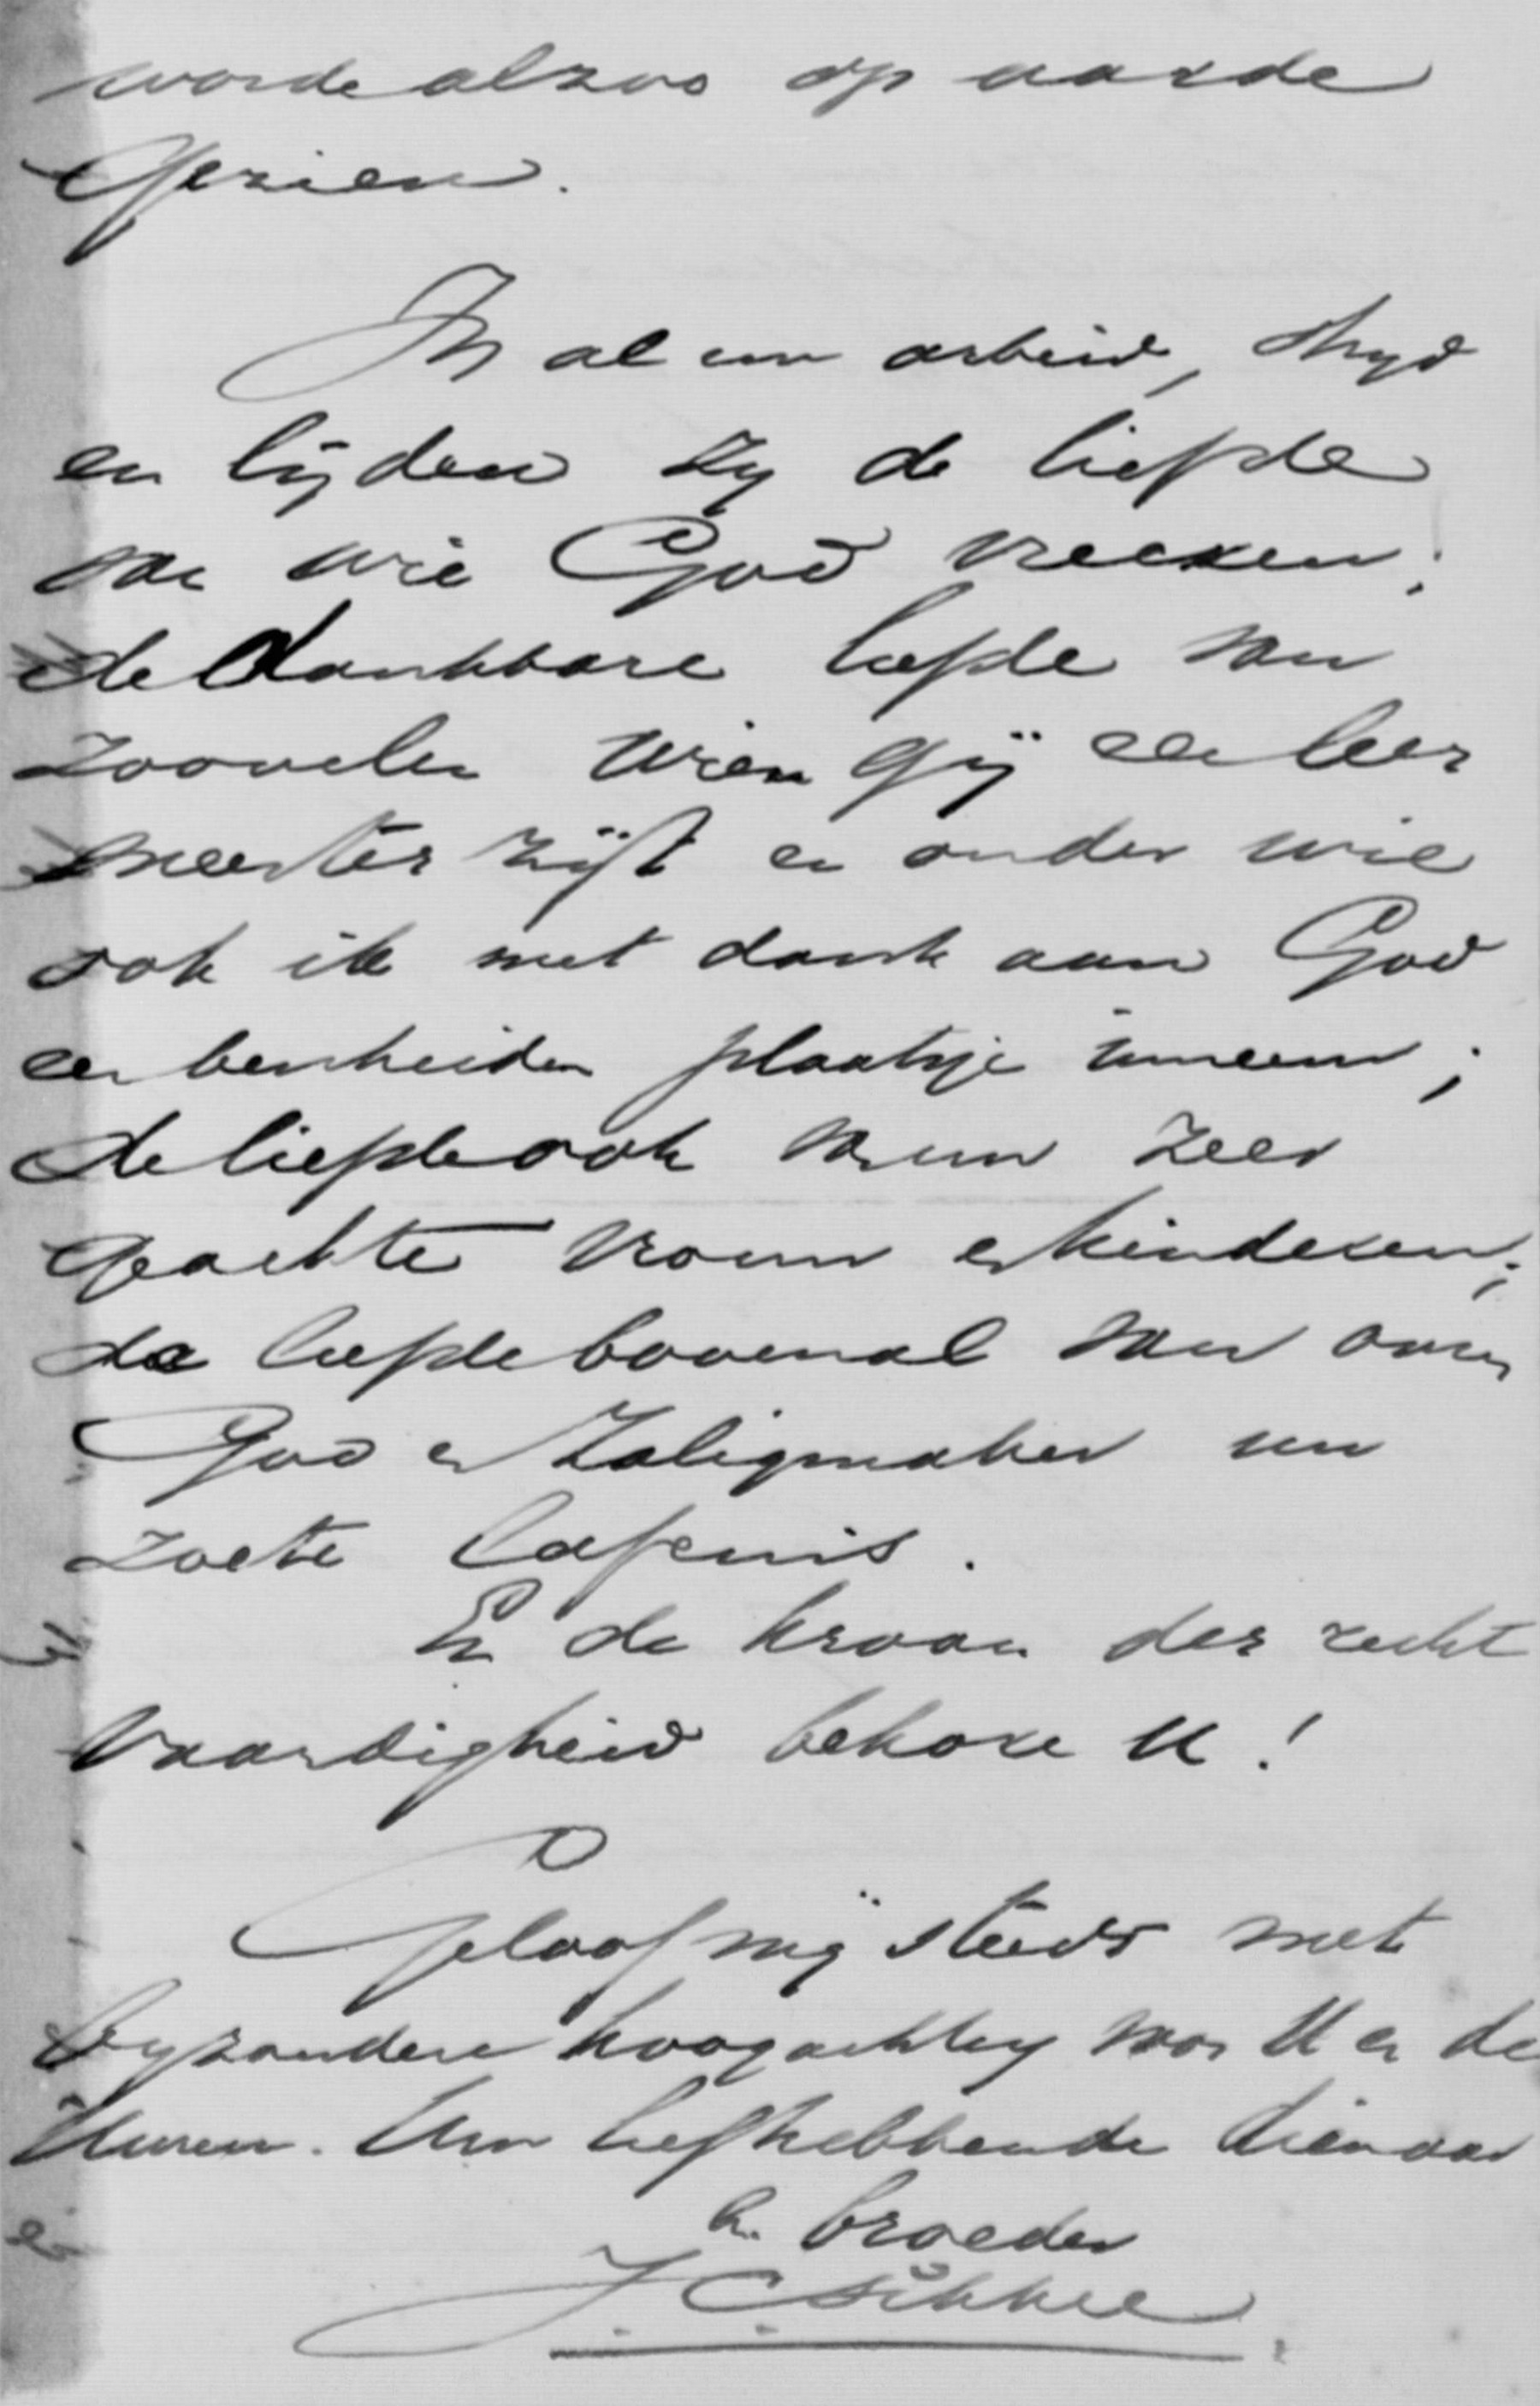 worde alzoo op aarde
Gezien.
In al uw arbeid, stryd
en lijden zy de liefde
van wie God vreezen;
de dankbare liefde van
zoovelen wien gij een leer
meester zijt en onder wie
ook ik met dank aan God
een bescheiden plaatsje inneem;
de liefde ook van uw zeer
geachte vrouw en kinderen;
de liefde bovenal van onzen
God en Zaligmaker uw
zoete lafenis.
En de kroon der recht
vaardigheid bekore U!
Geloof mij steeds met
byzondere hoogachting voor U en de
Uwen. Uw liefhebbende dienaar
en broeder
J. C. Sikkel